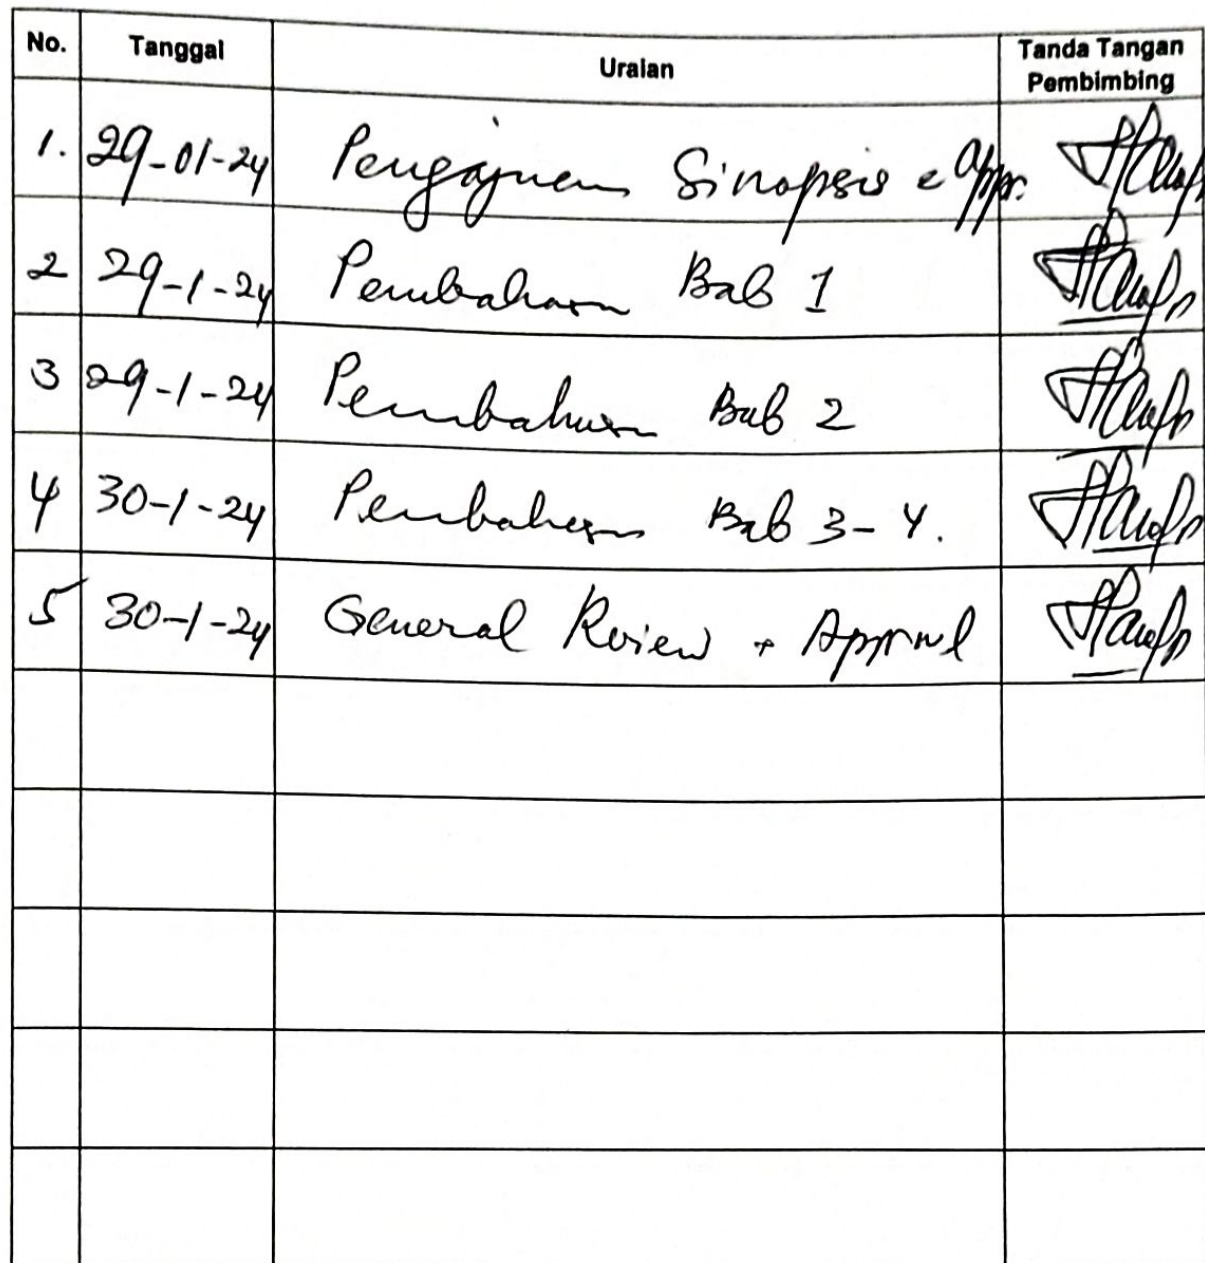 No. Tanggal Uraian Tanda Tangan Pembimbing
1. 29-01-24 Pengajuan Sinopsis & Appr.
2 29-1-24 Pembahasan Bab 1
3 29-1-24 Pembahasan Bab 2
4 30-1-24 Pembahasan Bab 3-4.
5 30-1-24 General Review + Approval